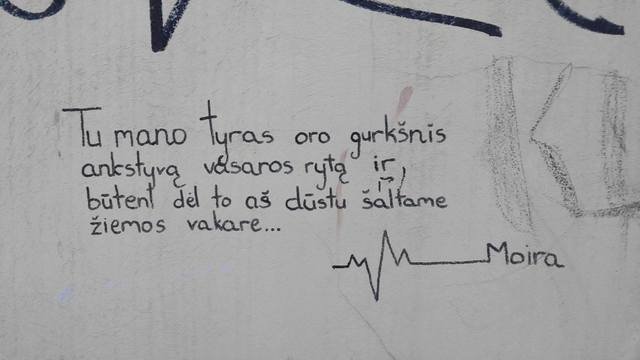 Tu mano tyras oro gurkšnis
ankstyvą vasaros rytą ir,
būtent dėl to aš dūstu šaltame
žiemos vakare...
Moira